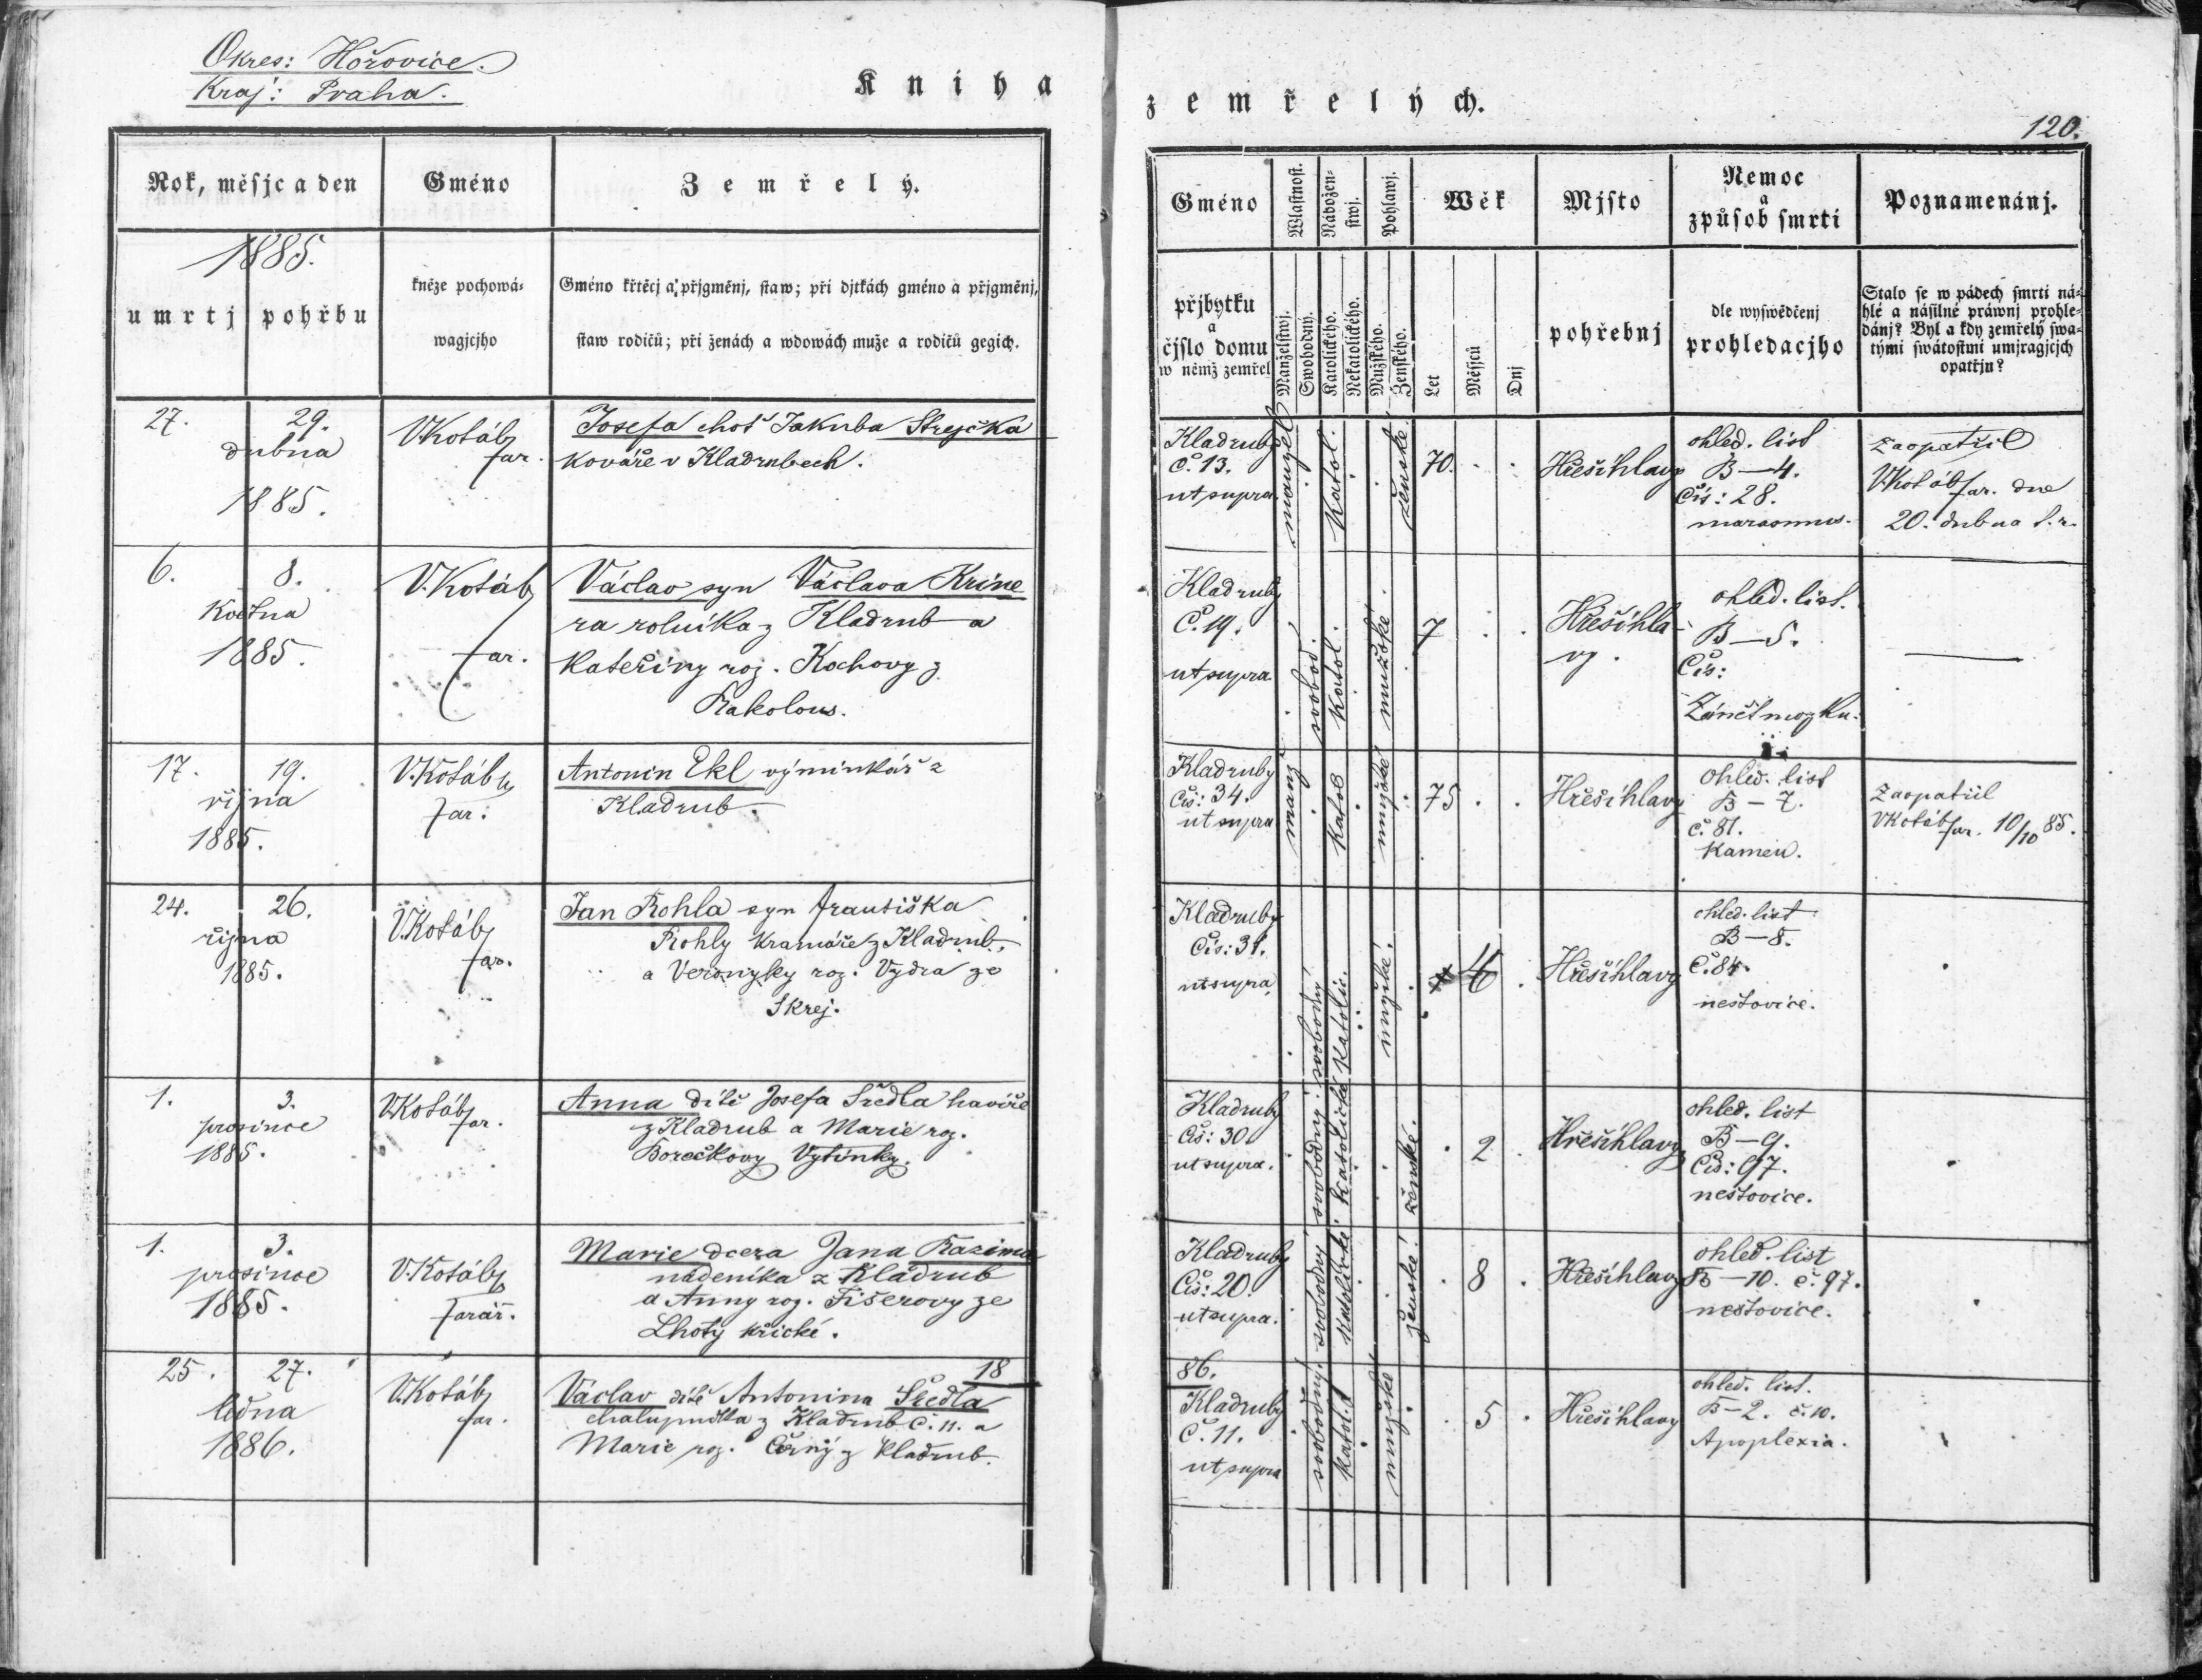 Okres: Hořovice.
Kraj: Praha.
Kniha
zemřelých.
120.
Rok, měsjc a den
Gméno
Zemřelý.
1885.
umrtj
pohřbu
kněze pochowá-
wagjcjho
Gméno křtěcj a přjgměnj, staw; při djtkách gméno a přjgměnj,
staw rodičů; při ženách a wdowách muže a rodičů gegich.
Gméno
Wlastnost.
Nábožen-
stwj.
Pohlawj.
Wěk
Mjsto
Nemoc
a
způsob smrti
Poznamenánj.
přjbytku
a
čjslo domu
w němž zemřel
Manželstwj.
Swobodný.
Katolického.
Nekatolického.
Mužského.
Ženského.
Let
Měsjců
Dnj
pohřebnj
dle wyswědčenj
prohledacjho
Stalo se w pádech smrti ná-
hlé a násilné práwnj prohle-
dánj? Byl a kdy zemřelý swa-
tými swátostmi umjragjcjch
opatřjn?
27.
29.
dubna
1885.
V.Kotáb
far.
Josefa choť Jakuba Strejčka
kováře v Kladrubech.
Kladruby
č. 13.
ut supra
manžel
katol.
ženské.
70
Hřešihlavy
ohled. list
B—4.
Čís: 28.
Zaopatřil
V.Kotáb far. dne
20. dubna t. r.
6.
8.
Května
1885.
V. Kotáb
far.
Václav syn Václava Krine
ra rolníka z Kladrub a
Kateřiny roz. Kochovy z
Rakolous.
Kladruby
Č. 19.
ut supra
svobod.
katol.
mužské.
7
Hřešihla-
vy.
ohled. list.
B—5.
Čís:
Zánět mozku.
17.
19.
října
1885.
V.Kotáb
far:
Antonin Ekl výminkář z
Kladrub.
Kladruby
Čís: 34.
ut supra
manž
katol
mužské
75
Hřešihlavy
ohled. list
B—7.
č. 81.
Kamen.
Zaopatřil
V.Kotáb far. 10/10 85.
24.
26.
října
1885.
V.Kotáb
far.
Jan Rohla syn Františka
Rohly kramáře z Kladrub,
a Veronyky roz. Vydra ze
Skrej.
Kladruby
Čís: 31.
ut supra
svobodný
katolic.
mužské.
Hřešihlavy
ohled. list
B—8.
č. 84.
neštovice.
1.
3.
prosince
1885.
V.Kotáb
far.
Anna dítě Josefa Šredla havíře
z Kladrub a Marie roz.
Borečkovy Vytinky.
Kladruby
Čís: 30.
ut supra.
svobodný.
katolické
ženské.
2
Hřešihlavy
ohled. list
B—9.
Čís: 97.
neštovice.
1.
3.
prosince
1885.
V.Kotáb
farář.
Marie dcera Jana Razima
nádeníka z Kladrub
a Anny roz. Fišerovy ze
Lhoty křické.
Kladruby
Čís: 20.
ut supra.
svobodný
katolické
ženské.
8
Hřešihlavy
ohled. list
B—10. č. 97.
neštovice.
18
86.
25.
27.
ledna
1886.
V.Kotáb
far.
Václav dítě Antonina Šredla
chalupníka z Kladrub č. 11. a
Marie roz. Černý z Kladrub.
Kladruby
Č. 11.
ut supra
svobodný.
katol.
mužské
5
Hřešihlavy
ohled. list.
B—2. č. 10.
Apoplexia.